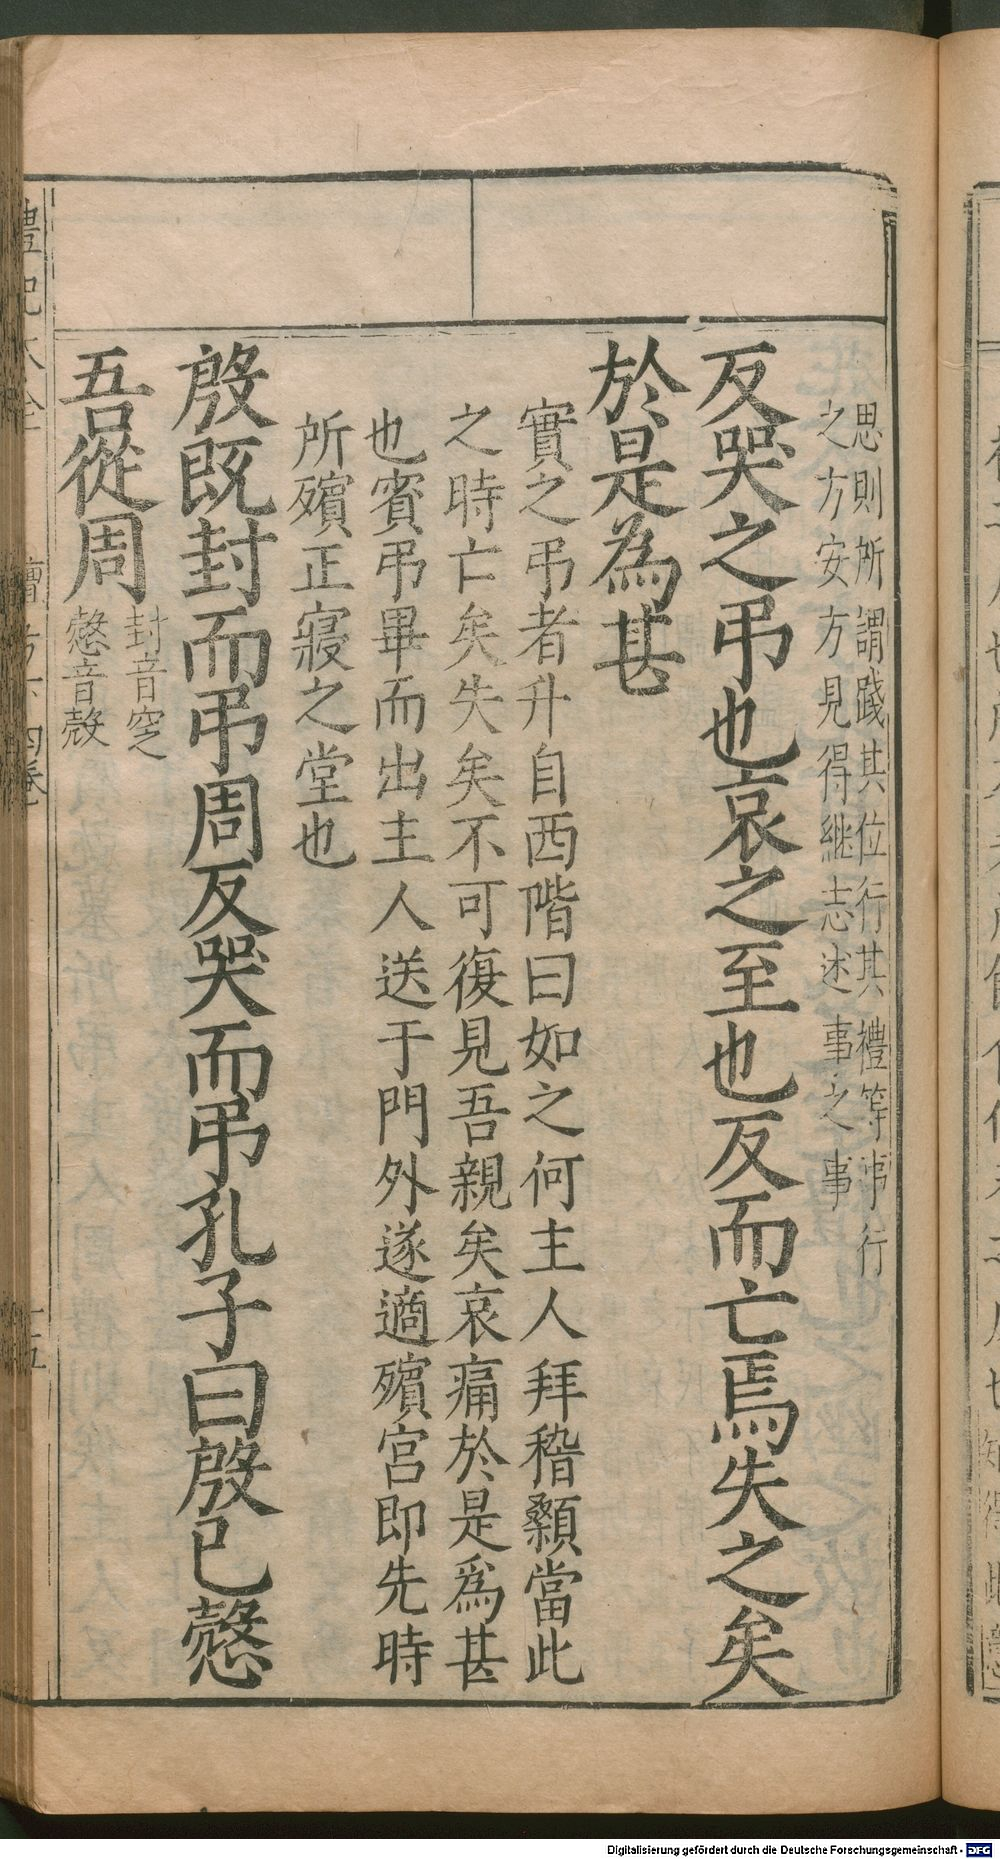 思則所謂踐其位行其禮等事行
之方安方見得繼志述事之事
反哭之弔也哀之至也反而亡焉失之矣
於是為甚
實之弔者升自西階曰如之何主人拜稽顙當此
之時亡矣失矣不可復見吾親矣哀痛於是爲甚
也賓弔畢而出主人送于門外遂適殯宮即先時
所殯正寢之堂也
殷既封而弔周反哭而弔孔子曰殷已慤
吾從周
封音窆
慤音殼
Digitalisierung gefördert durch die Deutsche Forschungsgemeinschaft - DFG